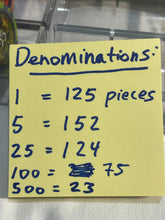 Denominations:
1 = 125 pieces
5 = 152
25 = 124
100 = 75
500 = 23